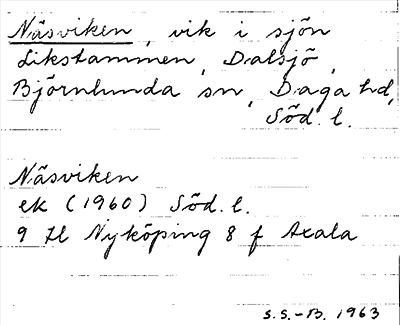 Näsviken, vik i sjön
Likstammen, Dalsjö,
Björnlunda sn, Daga hd,
Söd. l.
Näsviken
ek (1960) Söd. l.
9 H Nyköping 8 f Axala
S.S.-B. 1963